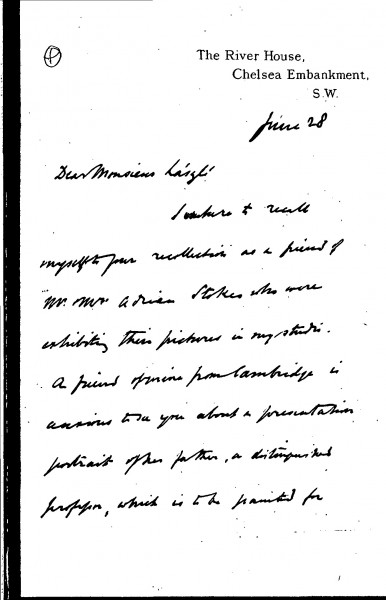 The River House,
Chelsea Embankment,
S.W.
June 28
Dear Monsieur László
I venture to recall
myself to your recollection as a friend of
Mr. Mrs Adrian Stokes who were
exhibiting their pictures in my studio.
A friend of mine from Cambridge is
anxious to see you about a presentation
portrait of her father, a distinguished
professor, which is to be painted for